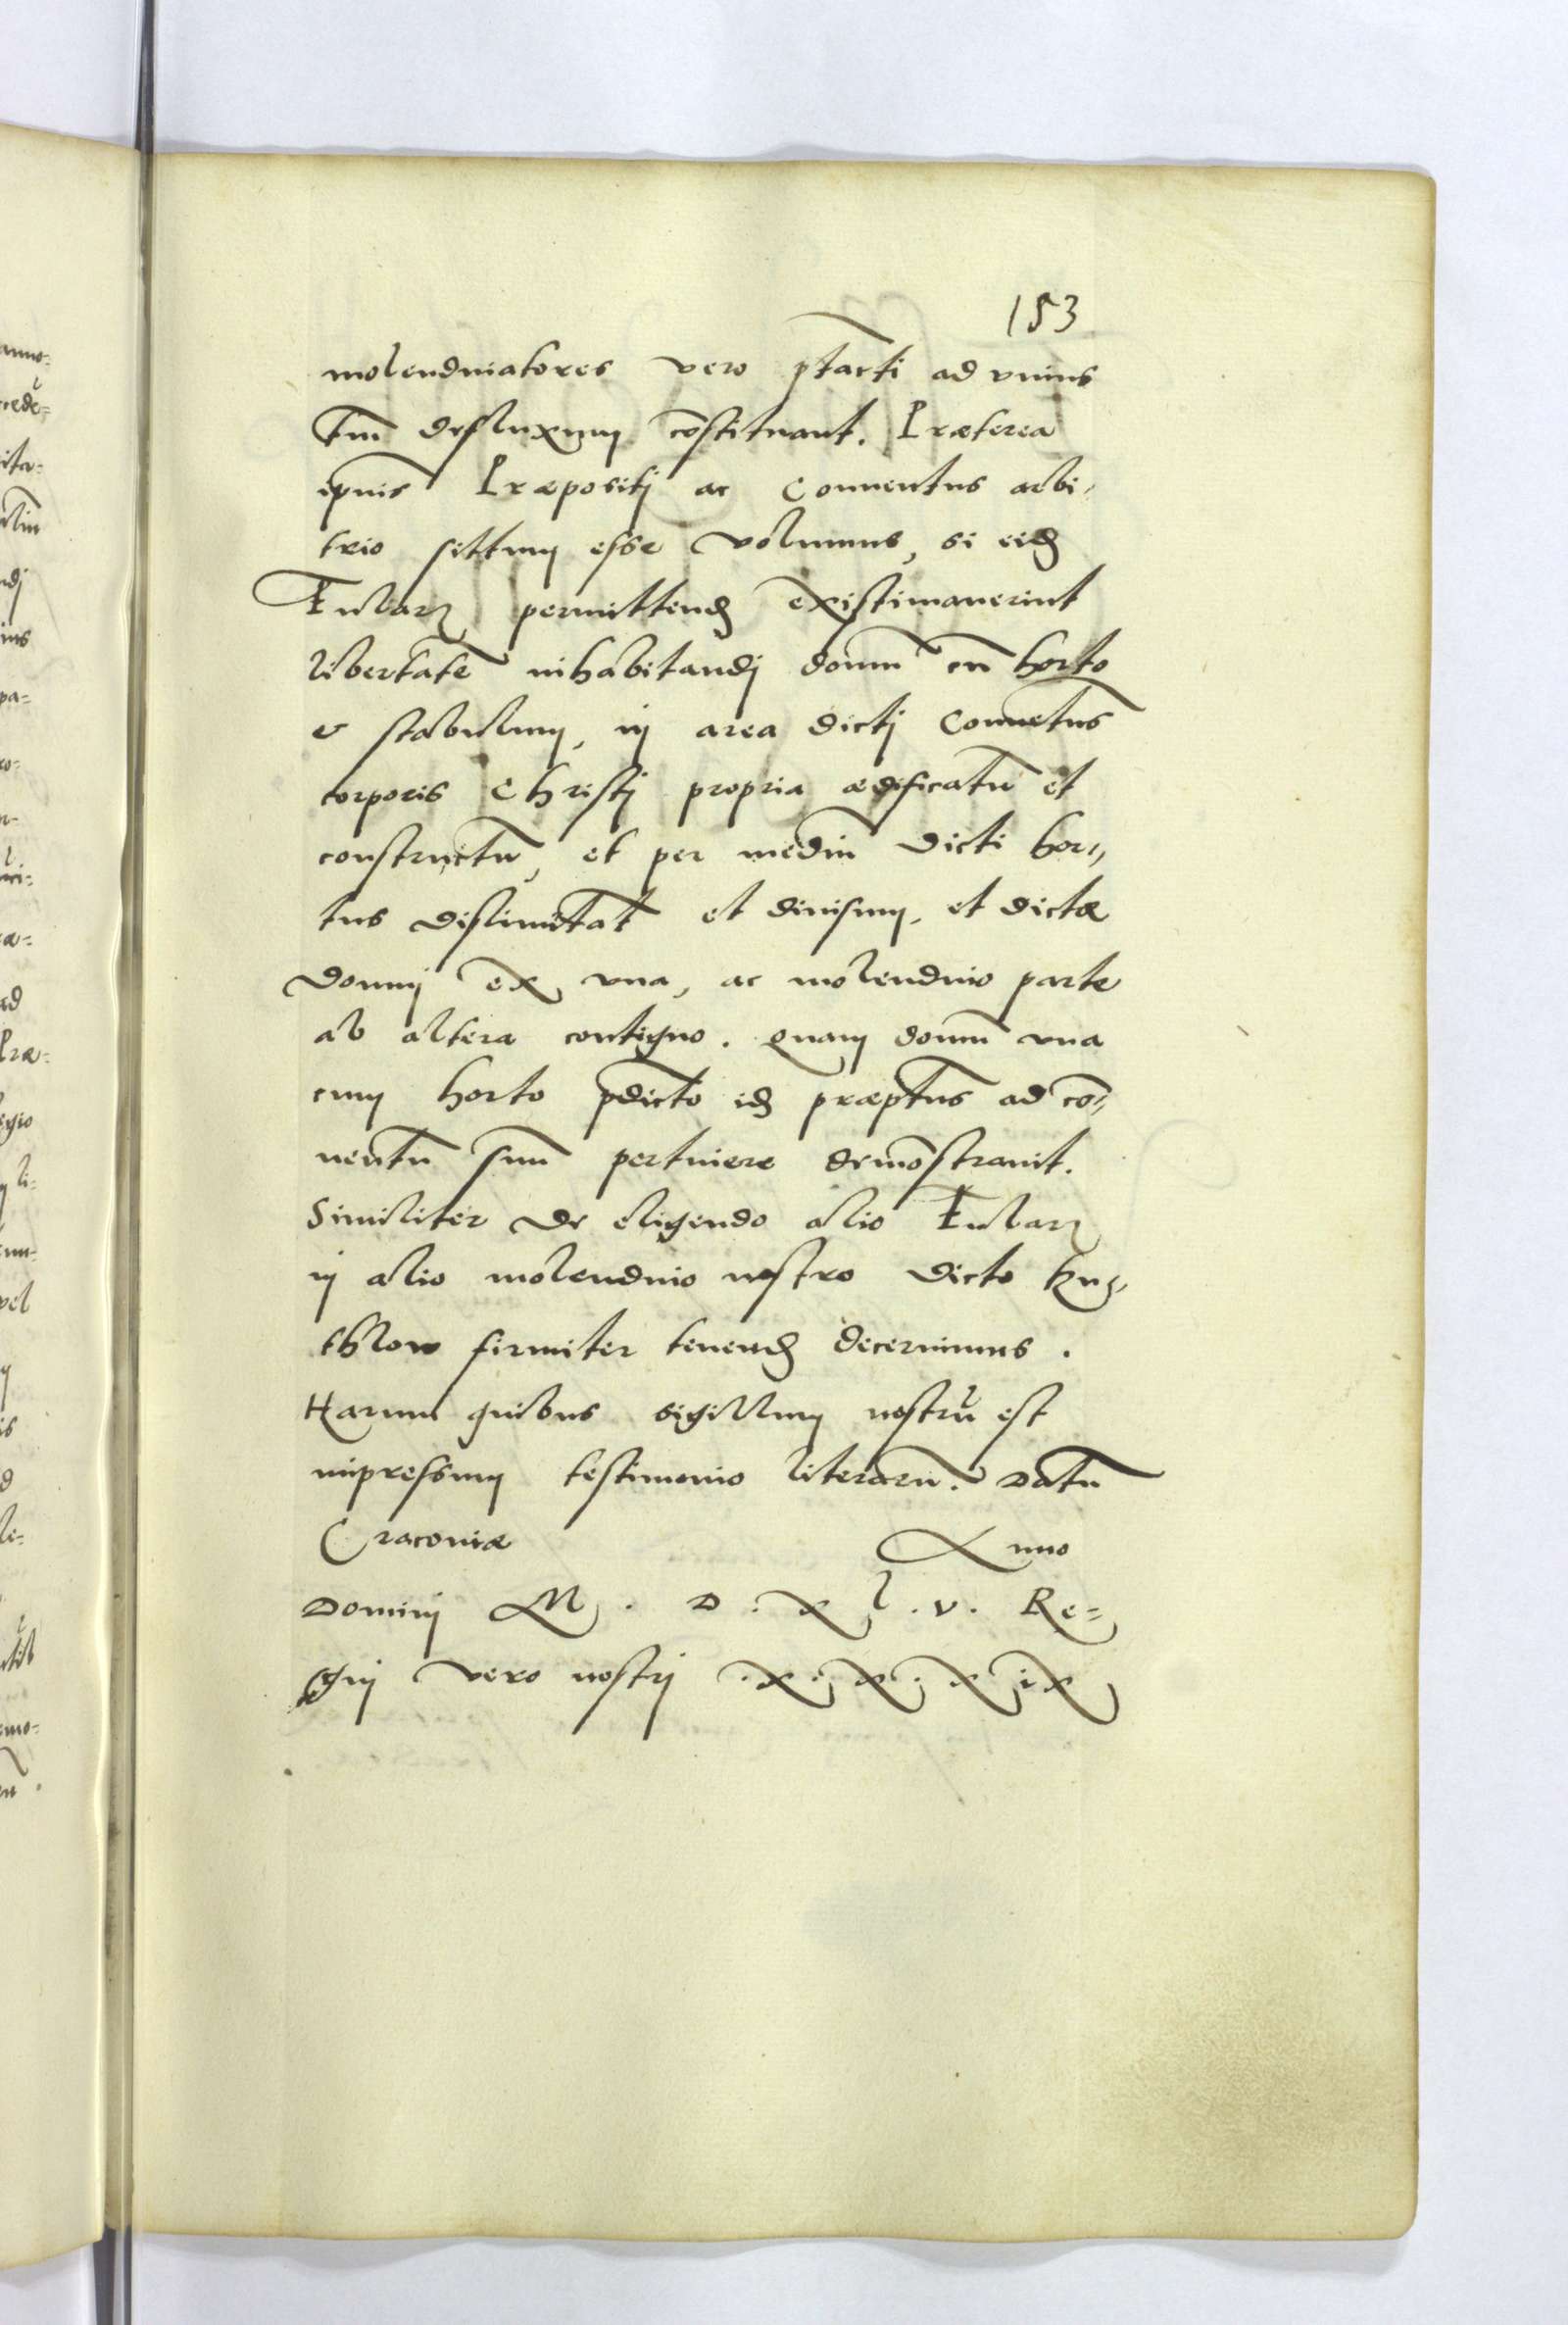 153
molendinatores vero ptacti ad vnius
tm̄ defluxum cōstituant. Præterea
ipsius Præpositj ac Conuentus arbi-
trio sittum esse volumus, si eid
Tular permittend existimauerint
libertatē inhabitandj domū cū horto
et stabulum, in area dictj Conuētus
corporis Christj propria ædificatū et
constructū, et per mediū dicti hor-
tus dislimitat et diuisum, et dictæ
Domuj ex vna, ac molendino parte
ab altera contiguo. quam domū vna
cum horto pdicto id præptus ad cō-
uentū suū pertinere demōstrauit.
Similiter de eligendo alio Tular
in alio molendino nostro dicto Ku-
thlow firmiter tenend decernimus.
Harum quibus sigillum nostrū est
impressum testimonio literarū. Datū
Cracouiæ Anno
Dominj M. D. X l. v. Re=
gnj vero nostrj .x. x. x ix